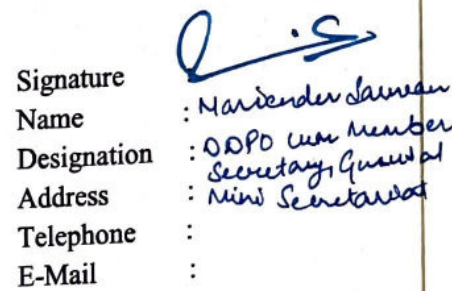 Signature
Name : Narvender Sarwan
Designation : DDPO cum Member
Secretary, Gurusal
Address : Mini Secretariat
Telephone :
E-Mail :